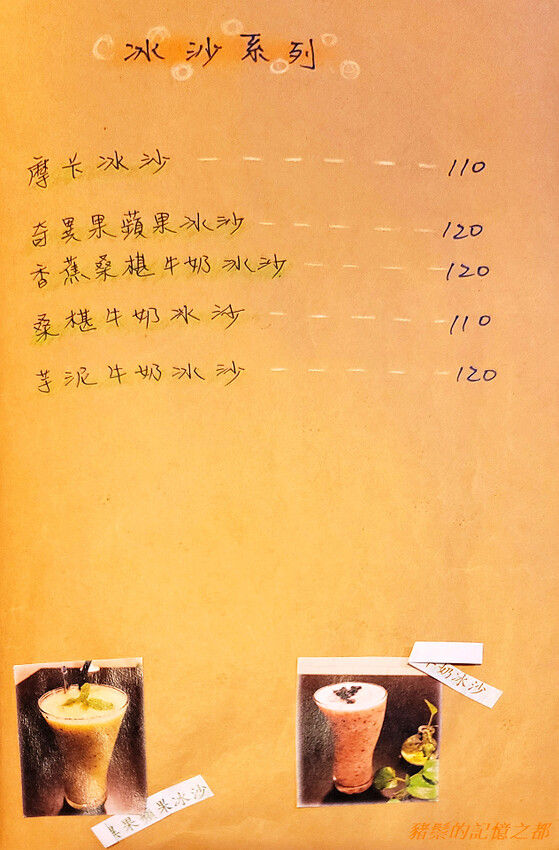 冰沙系列
摩卡冰沙 110
奇異果蘋果冰沙 120
香蕉桑椹牛奶冰沙 120
桑椹牛奶冰沙 110
芋泥牛奶冰沙 120
奶冰沙
果蘋果冰沙
豬鬃的記憶之都